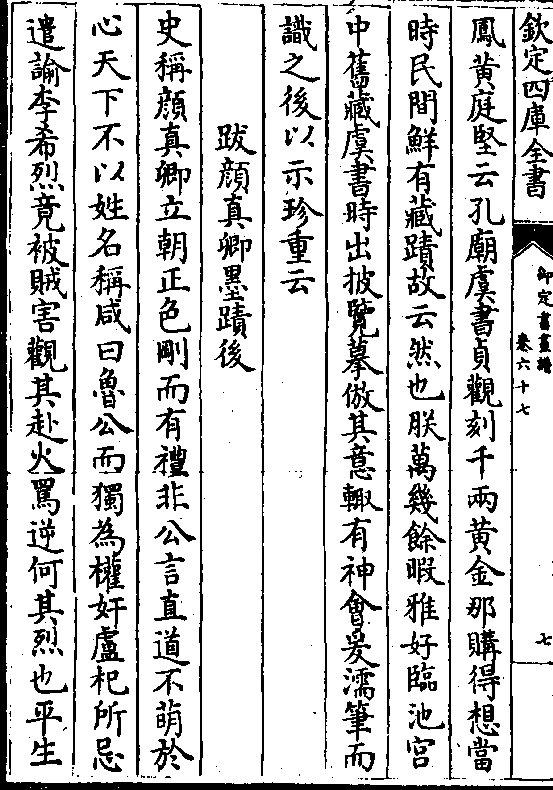 欽定四庫全書
御定書畫譜
卷六十七
七
鳳黃庭堅云孔廟虞書貞觀刻千兩黃金那購得想當
時民間鮮有藏蹟故云然也朕萬幾餘暇雅好臨池宮
中舊藏虞書時出披覽摹倣其意輙有神會爰濡筆而
識之後以示珍重云
跋顔真卿墨蹟後
史稱顔真卿立朝正色剛而有禮非公言直道不萌於
心天下不以姓名稱咸曰魯公而獨為權奸盧杞所忌
遣諭李希烈竟被賊害觀其赴火罵逆何其烈也平生